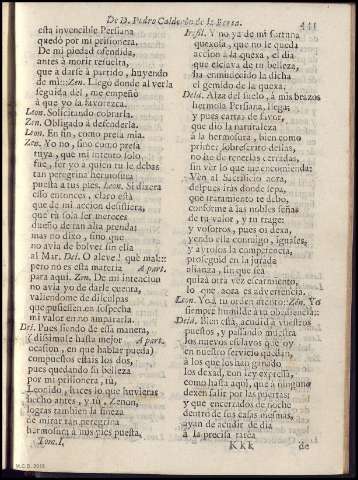 De D. Pedro Calderon de la Barca. 441
esta invencible Persiana
quedó por mi prisionera.
De mi piedad ofendida,
antes à morir resuelta,
que à darse à partido, huyendo
de mi: Zen. Luego donde al verla
seguida del, me empeñó
à que yo la favorezca.
Leon. Solicitando cobrarla.
Zen. Obligado à defenderla.
Leon. En fin, como presa mia.
Zen. Yo no, sino como presa
tuya, que mi intento solo
fue, ser yo à quien tu le debas
tan peregrina hermosura
puesta à tus pies. Leon. Si dixera
esso entonces, claro está
que de mi accion desistiera,
que tú sola ser mereces
dueño de tan alta prenda:
mas no dixo, sino que
no avia de bolver sin ella
al Mar. Dei. O aleve! què mal::
pero no es esta materia A part.
para aqui. Zen. De mi intencion
no avia yo de darle cuenta,
valiendome de disculpas
que pusiessen en sospecha
mi valor en no ampararla.
Dei. Pues siendo de esta manera,
(dissimule hasta mejor A part.
ocasion, en que hablar pueda)
compuestos estais los dos,
pues quedando su belleza
por mi prisionera, tù,
Leonido, haces lo que huvieras
hecho antes, y tù, Zenon,
logras tambien la fineza
de mirar tan peregrina
hermosura à mis pies puesta,
Tom. I.
Irifil. Y no ya de mi fortuna
quexosa, que no le queda
accion à la quexa, el dia
que esclava de tu belleza,
ha enmudecido la dicha
el gemido de la quexa.
Deid. Alza del suelo, à mis brazos
hermosa Persiana, llega;
y pues cartas de favor,
que diò la naturaleza
à la hermosura, bien como
primer sobrescrito dellas,
no he de tenerlas cerradas,
sin ver lo que me encomienda:
Ven al Sacrificio aora,
despues iràs donde sepa,
que tratamiento te debo,
conforme à las nobles señas
de tu valor, y tu trage:
y vosotros, pues os dexa,
yendo ella conmigo, iguales,
y avisaos la competencia,
proseguid en la jurada
alianza, sin que sea
quizà otra vez escarmiento,
lo que aora es advertencia.
Leon. Yo à tu orden atento: Zen. Yo
siempre humilde à tu obediencia:
Deid. Bien està, acudid à vuestros
puestos, y passando muestra
los nuevos esclavos que oy
en nuestro servicio quedan,
à los que las han ganado
los dexad, con ley expressa,
como hasta aqui, que à ninguno
dexen salir por las puertas:
y que encerrados de noche
dentro de sus casas mesmas,
ayan de acudir de dia
à la precisa tarea
Kkk de
M.C.D. 2018